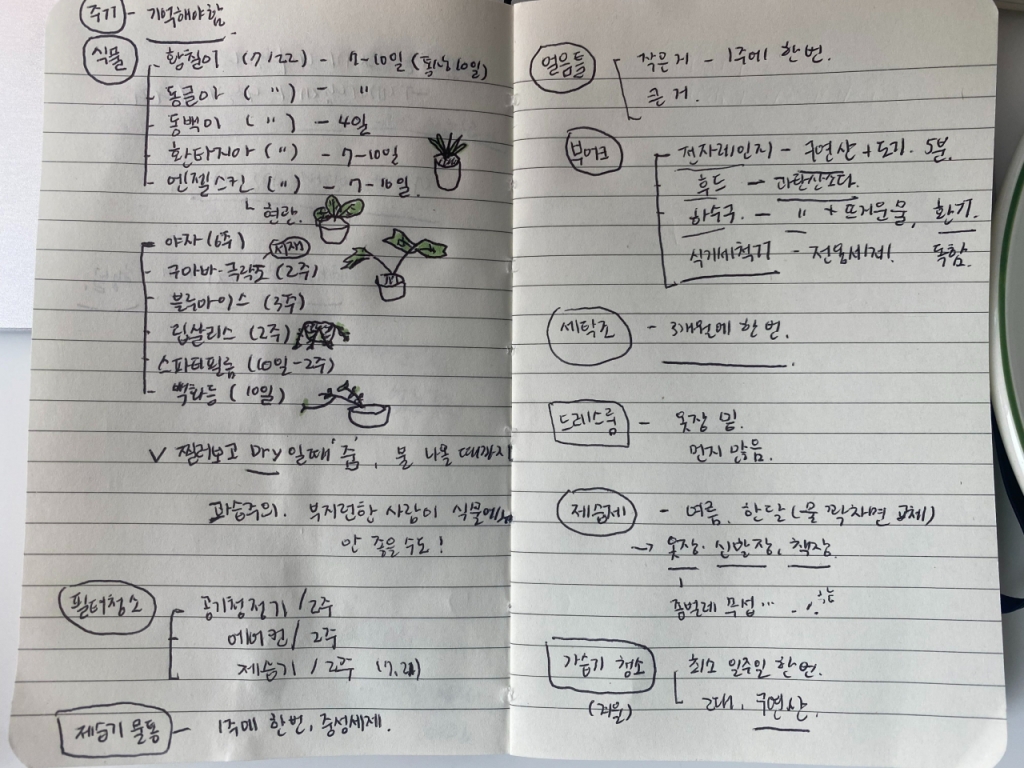 주기 - 기억해야함
식물
황칠이 (7/22) - 7-10일 (통상 10일)
동글아 ( " ) - "
동백이 ( " ) - 4일
환타지아 ( " ) - 7-10일
엔젤스킨 ( " ) - 7-10일.
ㄴ 현관.
야자 (6주)
서재
구아바·극락조 (2주)
블루아이스 (3주)
립살리스 (2주)
스파티필름 (10일-2주)
백화등 (10일)
V 찔러보고 Dry 일때 줌, 물 나올 때까지
과습주의. 부지런한 사람이 식물에
안 좋을수도!
필터청소
공기청정기 / 2주
에어컨 / 2주
제습기 / 2주 (7.21)
제습기 물통 - 1주에 한번, 중성세제.
얼음틀
작은거 - 1주에 한번.
큰 거.
부엌
전자레인지 - 구연산 + 도기. 5분.
후드 - 과탄산소다.
하수구. - " + 뜨거운물, 환기.
식기세척기 - 전용세제. 독함.
세탁조 - 3개월에 한번.
드레스룸 - 옷장 밑.
먼지 많음.
제습제 - 여름, 한달 (물 꽉차면 교체)
→ 옷장. 신발장, 책장.
좀벌레 무섭...
가습기 청소
(겨울)
최소 일주일 한번.
2대, 구연산.